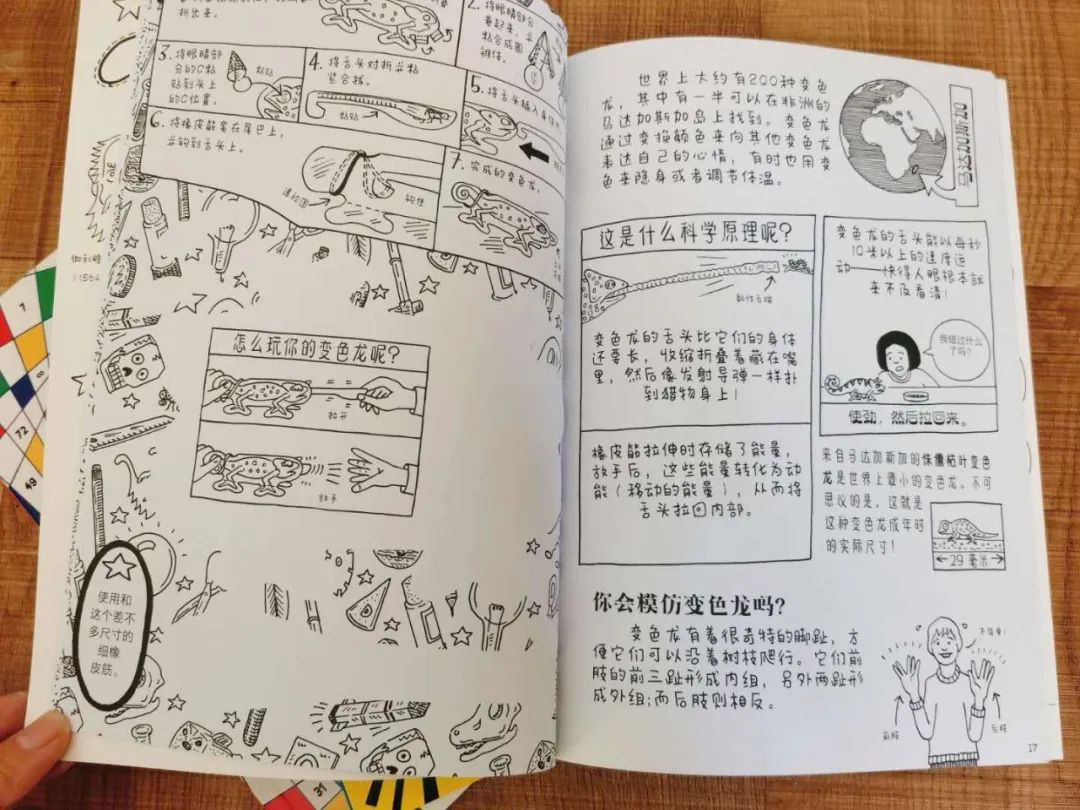 折出来。
2. 将眼睛部分
卷起来，并
粘合成圆
锥体。
3. 将眼睛部
分的C粘
贴到头上
的C位置。
粘贴
4. 将舌头对折并粘
紧合拢。
粘贴
5. 将舌头插入身体
6. 将橡皮筋套在尾巴上，
并钩到舌头上。
钩住
7. 完成的变色龙。
伽利略
(1564
怎么玩你的变色龙呢？
拉开
放手
使用和
这个差不
多尺寸的
细橡
皮筋。
7
72
49
31
世界上大约有200种变色
龙，其中有一半可以在非洲的
马达加斯加岛上找到。变色龙
通过变换颜色来向其他变色龙
表达自己的心情，有时也用变
色来隐身或者调节体温。
马达加斯加
这是什么科学原理呢？
黏性舌端
变色龙的舌头比它们的身体
还要长，收缩折叠着藏在嘴
里，然后像发射导弹一样扑
到猎物身上！
橡皮筋拉伸时存储了能量，
放手后，这些能量转化为动
能（移动的能量），从而将
舌头拉回内部。
变色龙的舌头能以每秒
10米以上的速度运
动——快得人眼根本就
来不及看清！
我错过什么
了吗？
使劲，然后拉回来。
来自马达加斯加的侏儒枯叶变色
龙是世界上最小的变色龙。不可
思议的是，这就是
这种变色龙成年时
的实际尺寸！
29 毫米
你会模仿变色龙吗？
变色龙有着很奇特的脚趾，方
便它们可以沿着树枝爬行。它们前
肢的前三趾形成内组，另外两趾形
成外组；而后肢则相反。
不简单！
前肢
后肢
17